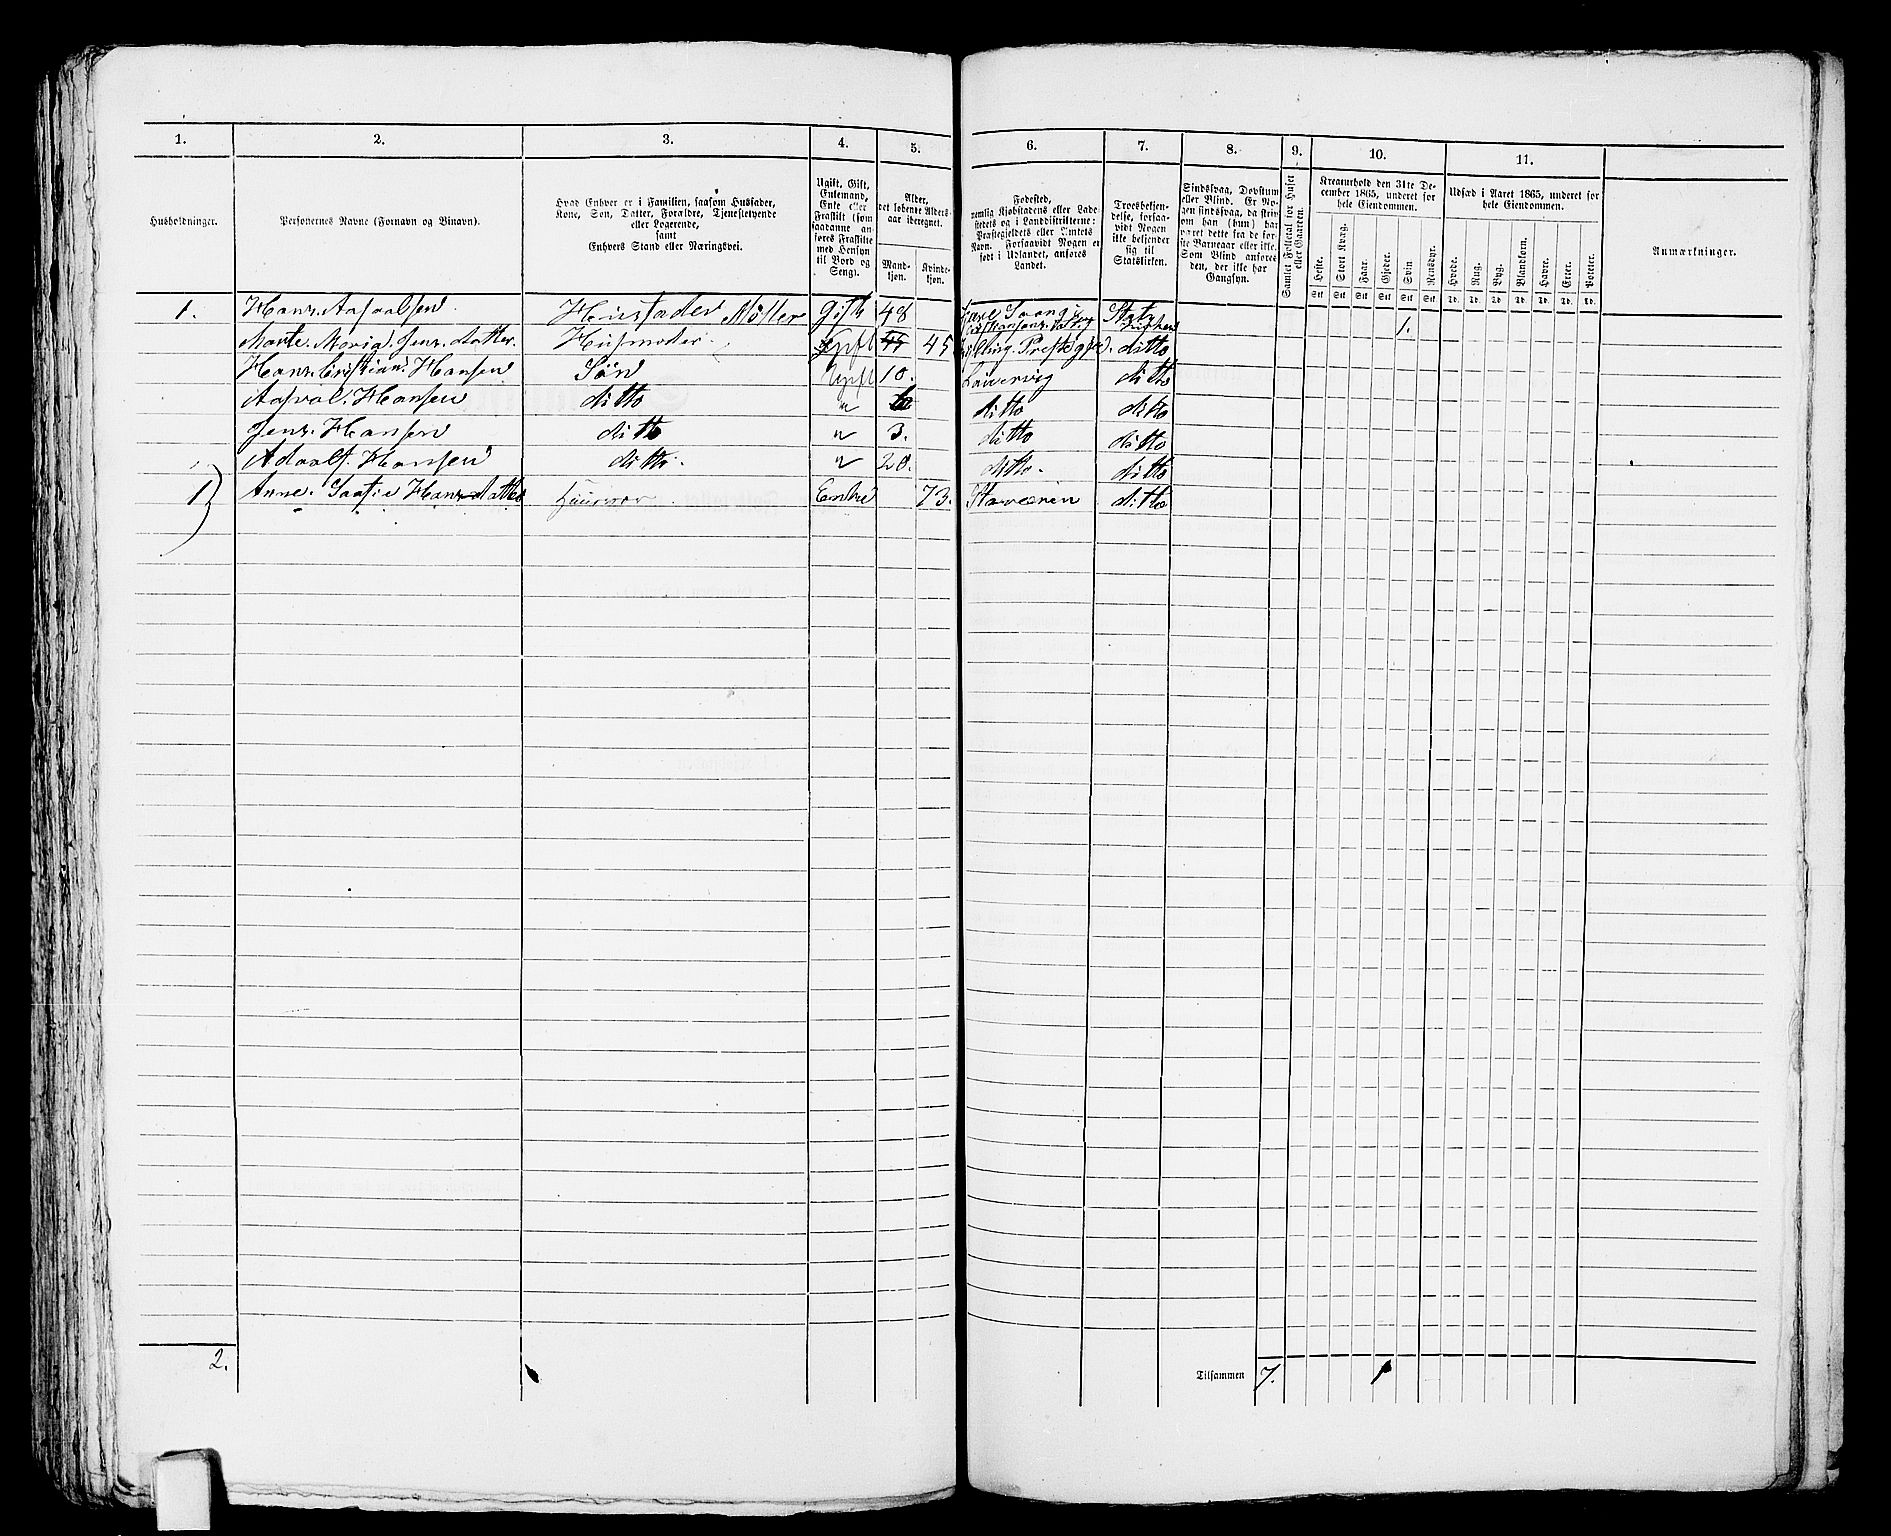 1. 2. 3. 4. 5. 6. 7. 8. 9. 10. 11.
Husholdninger.
Personernes Navne (Fornavn og Binavn).
Hvad Enhver er i Familien, saasom Husfader,
Kone, Søn, Datter, Forældre, Tjenestetyende
eller Logerende,
samt
Enhvers Stand eller Næringsvei.
Ugift, Gift,
Enkemand,
Enke eller
Fraskilt (som
saadanne an-
føres Fraskilte
med Hensyn
til Bord og
Seng).
Alder,
det løbende Alders-
aar iberegnet.
Mand-
kjøn.
Kvinde-
kjøn.
Fødested,
nemlig Kjøbstadens eller Lade-
stedets og i Landdistrikterne:
Præstegjeldets eller Amtets
Navn. Forsaavidt Nogen er
født i Udlandet, anføres
Landet.
Troesbekjen-
delse, forsaa-
vidt Nogen
ikke bekjender
sig til
Statskirken.
Sindssvag, Døvstum
eller Blind. Er No-
gen sindssvag, da skriv
om han (hun) har
været dette fra de før-
ste Barneaar eller ikke.
Som Blind anføres
den, der ikke har
Gangsyn.
Samlet Folketal for Huset
eller Gaarden.
Kreaturhold den 31te De-
cember 1865, underet for
hele Eiendommen.
Heste. Stort Kvæg. Faar. Gjeder. Svin. Rensdyr.
Stk Stk Stk Stk Stk Stk
Udsæd i Aaret 1865, underet for
hele Eiendommen.
Hvede. Rug. Byg. Blandkorn. Havre. Erter. Poteter.
Td. Td. Td. Td. Td. Td. Td.
Anmærkninger.
1. Hans. Husfader Møller Gift 48 1.
Marte. Maria Jens datter. Husmoder. 45 45 ditto
Hans. Cristian. Hansen Søn 10. Laurvig ditto
Hansen ditto " ditto ditto
Jens. Hansen ditto " 3. ditto ditto
Adaalf. Hansen ditto. " 20. ditto. ditto
1) Anne. Hans datter Enke 73. Staværen ditto
2.
Tilsammen 7. 1